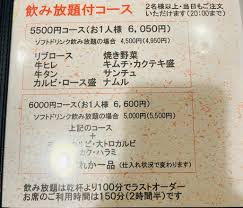 飲み放題付コース
2名様以上・当日もご注文
いただけます(20:00まで)
5500円コース(お1人様 6,050円)
ソフトドリンク飲み放題の場合 4,500円(4,950円)
リブロース 焼き野菜
牛ヒレ キムチ・カクテキ盛
牛タン サンチュ
カルビ・ロース盛 ナムル
6000円コース(お1人様 6,600円)
ソフトドリンク飲み放題の場合 5,000円(5,500円)
上記のコース
+
カルビ・大トロカルビ
カク・ハラミ
れか一品 (仕入れ状況で変わります)
飲み放題は乾杯より100分でラストオーダー
お席のご利用時間は150分(2時間半)です